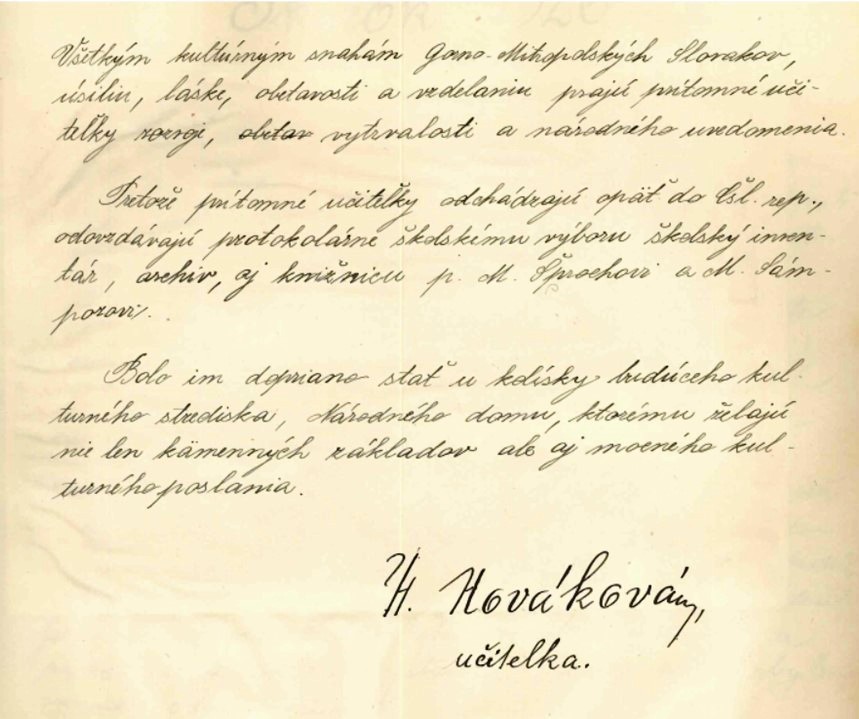 Všetkým kultúrným snahám Gorno-Mitropolských Slovakov,
úsiliu, láske, obetavosti a vzdelaniu prajú prítomné uči-
teľky rozvoje, obetav vytrvalosti a národného uvedomenia.
Pretože prítomné učiteľky odchádzajú opäť do Čsl. rep.,
odovzdávajú protokolárne školskému výboru školský inven-
tár, archiv, aj knižnicu p. M. Šprochovi a M. Šám-
porovi.
Bolo im dopriano stať u kolísky budúceho kul-
turného strediska, Národného domu, ktorému želajú
nie len kämenných základov ale aj mocného kul-
turného poslania.
H. Nováková,
učitelka.